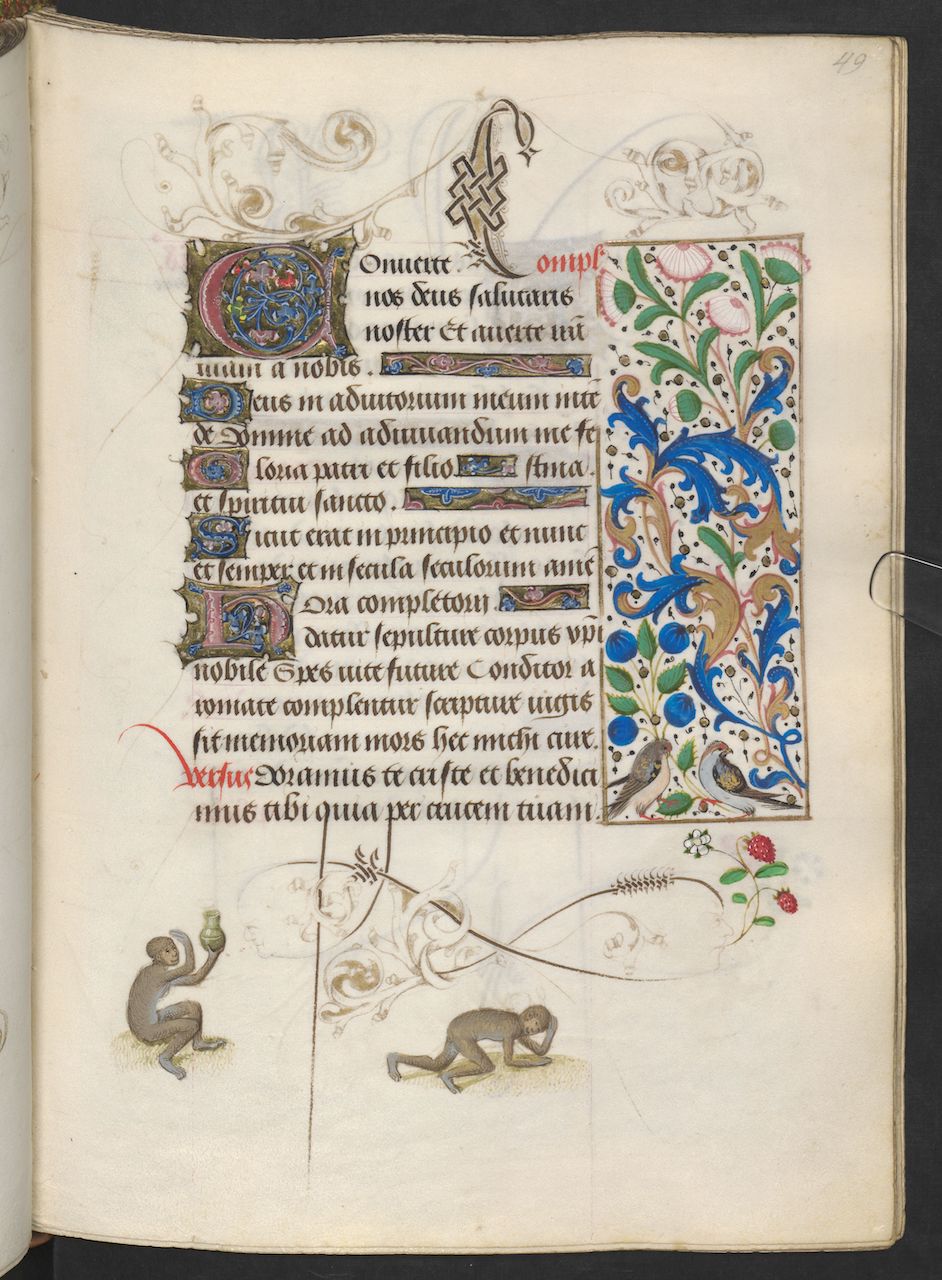 49
Compl
Onuerte
nos deus salutaris
noster Et auerte irā
tuam a nobis.
Deus in adiutorium meum intē
de Domine ad adiuuandum me fe
Gloria patri et filio stina.
et spiritui sancto.
Sicut erat in principio et nunc
et semper et in secula seculorum amē
Hora completorij
datur sepulture corpus xp̄i
nobile Spes uite future Conditor a
romate complentur scripture iugis
sit memoriam mors hec michi cure.
versus Adoramus te criste et benedici
mus tibi quia per crucem tuam.